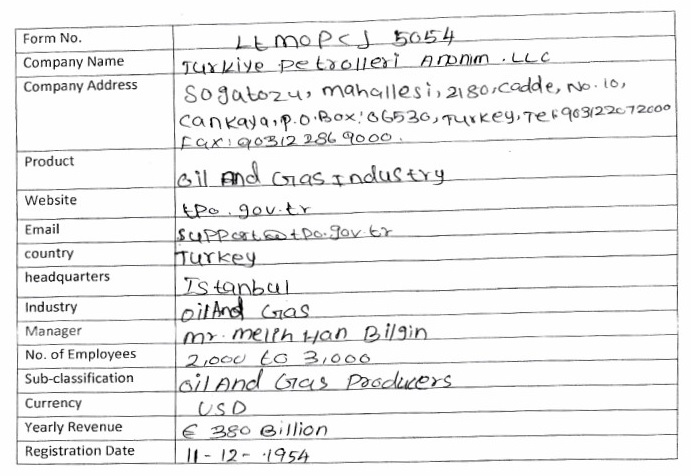 Form No. LtmOPCJ 5054
Company Name Turkiye Petrolleri Anonim .LLC
Company Address Sogatozu, mahallesi, 2180, cadde, No. 10,
Cankaya, P.O.Box: 06530, Turkey, Tel: 903122072000
Fax: 90312 286 9000.
Product Oil And Gas Industry
Website tpo.gov.tr
Email support@tpo.gov.tr
country Turkey
headquarters Istanbul
Industry Oil And Gas
Manager mr. melph Han Bilgin
No. of Employees 2,000 to 3,000
Sub-classification Oil And Gas Producers
Currency USD
Yearly Revenue € 380 Billion
Registration Date 11-12-1954